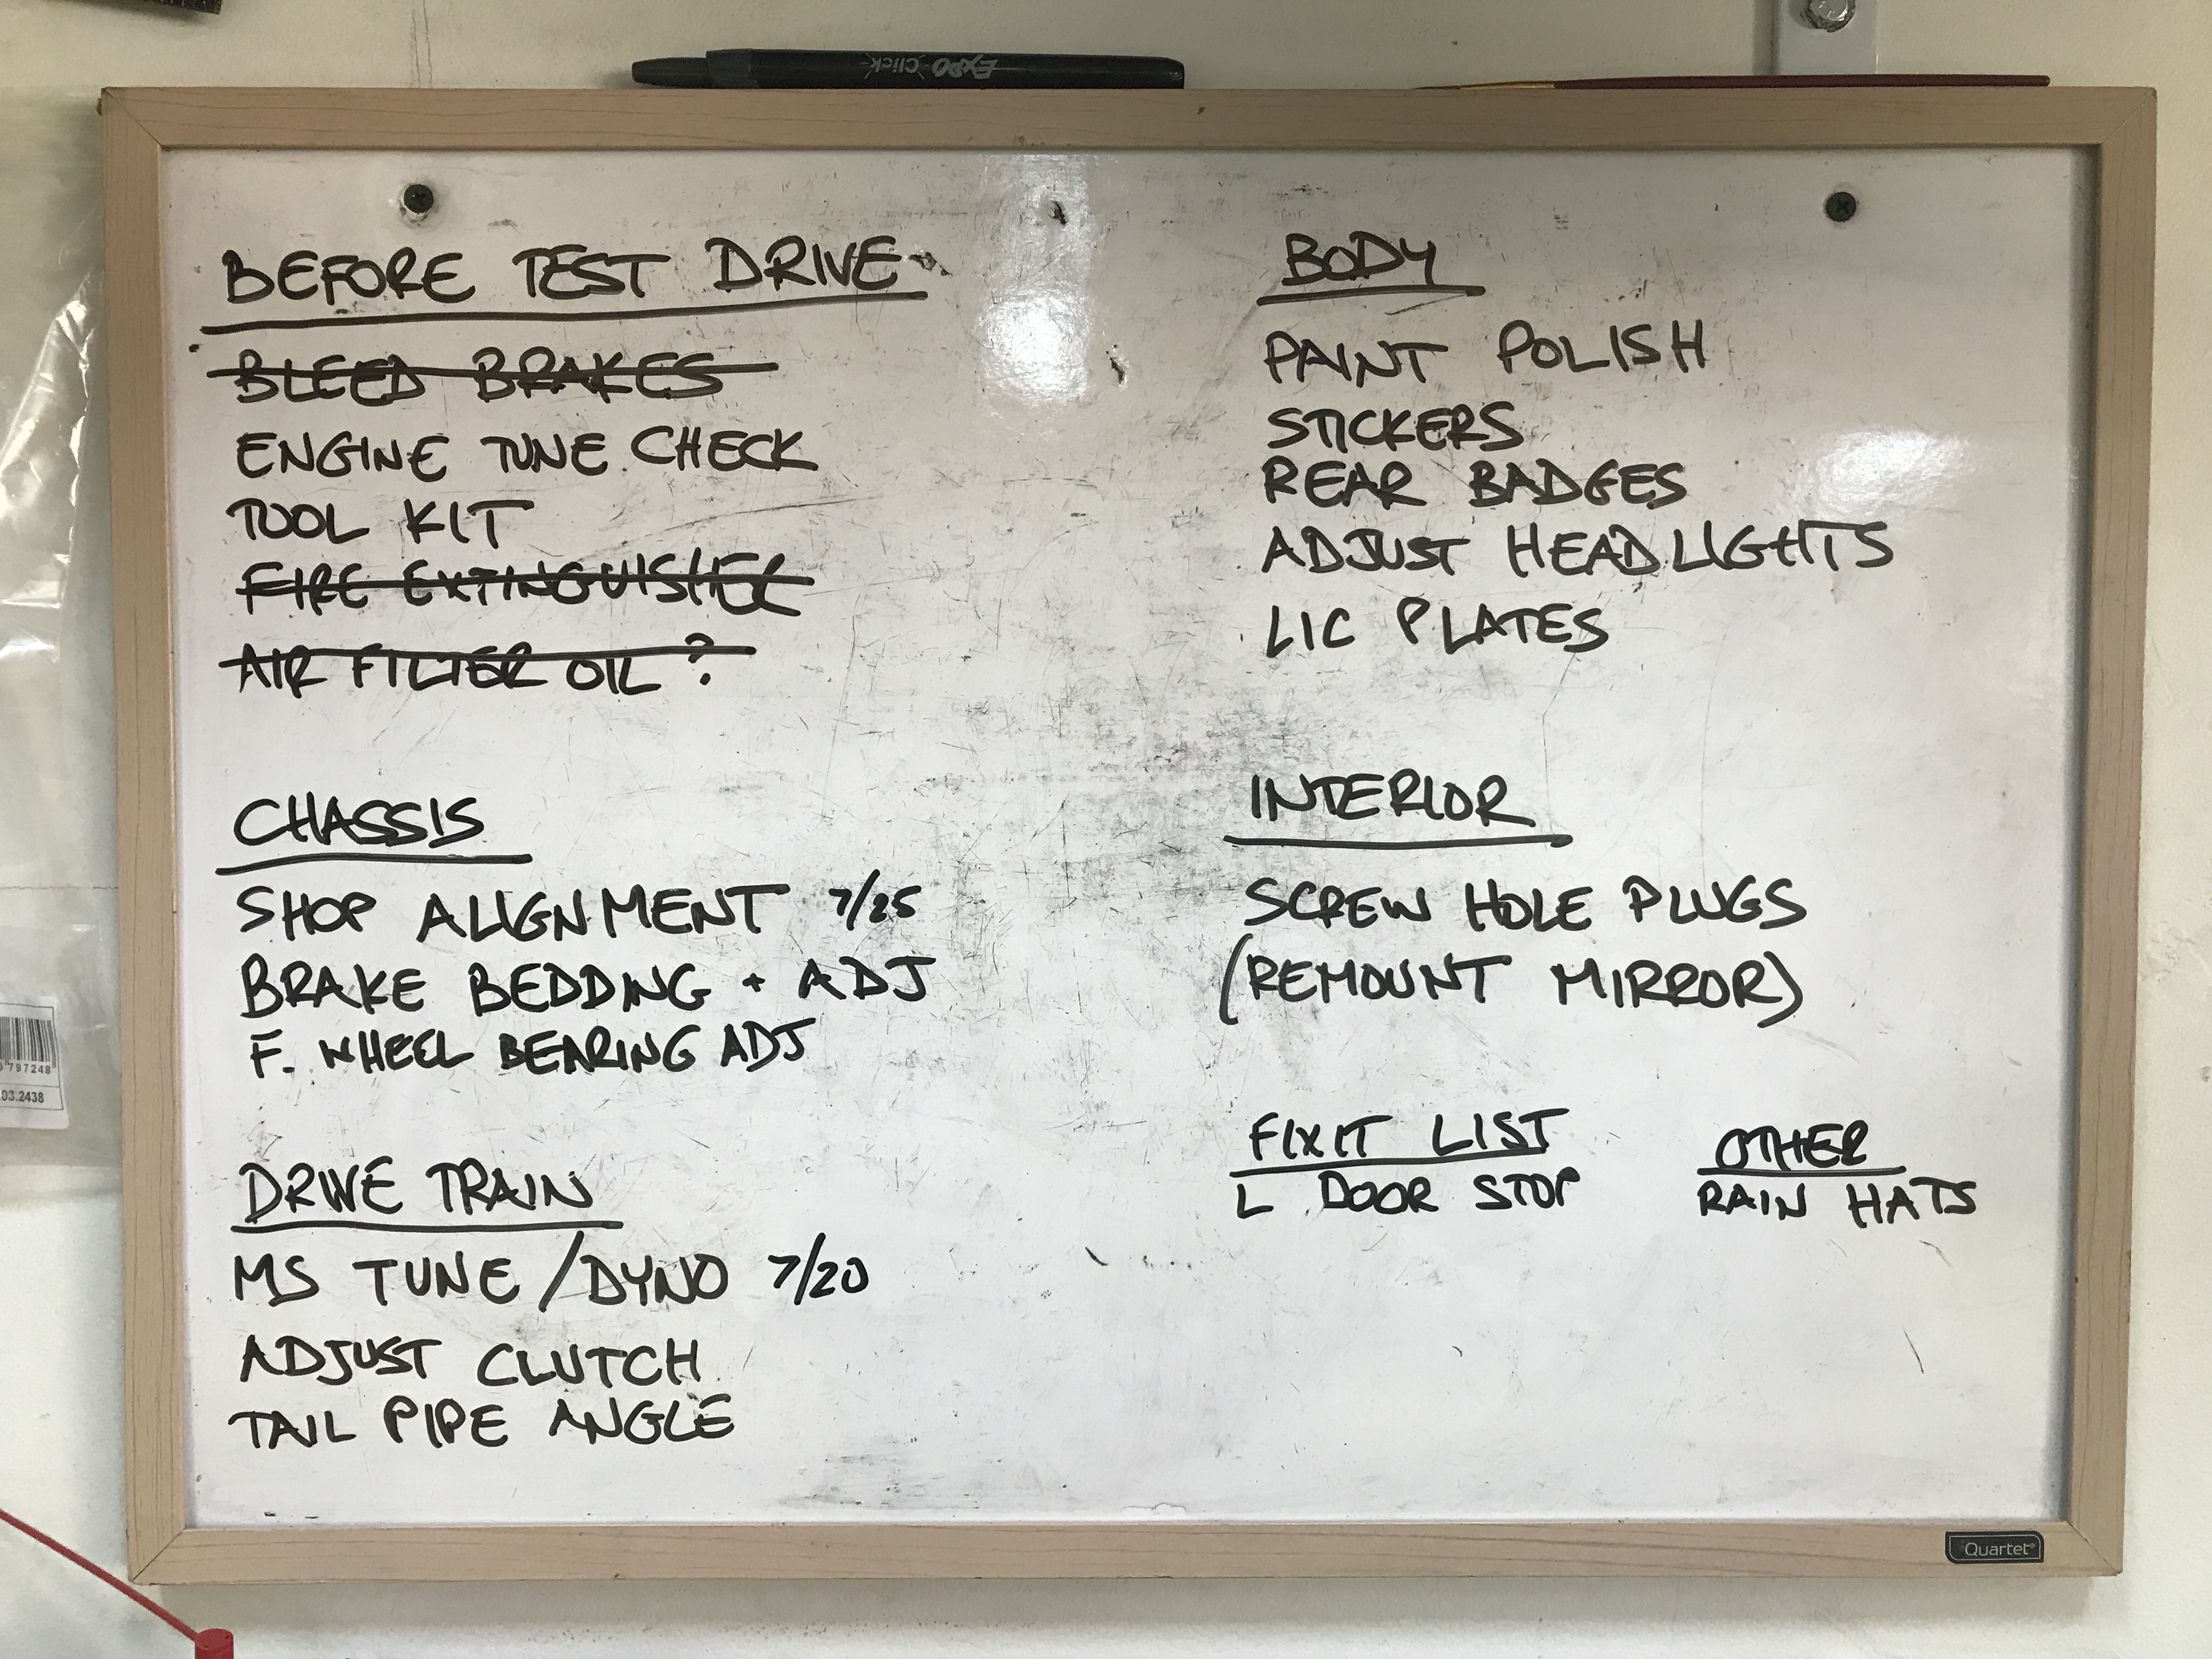 Expo Click
BEFORE TEST DRIVE
BLEED BRAKES
ENGINE TUNE CHECK
TOOL KIT
FIRE EXTINGUISHER
AIR FILTER OIL ?
CHASSIS
SHOP ALIGNMENT 7/25
BRAKE BEDDING + ADJ
F. WHEEL BEARING ADJ
DRIVE TRAIN
MS TUNE / DYNO 7/20
ADJUST CLUTCH
TAIL PIPE ANGLE
BODY
PAINT POLISH
STICKERS
REAR BADGES
ADJUST HEADLIGHTS
LIC PLATES
INTERIOR
SCREW HOLE PLUGS
(REMOUNT MIRROR)
FIXIT LIST
L DOOR STOP
OTHER
RAIN HATS
797248
03.2438
Quartet